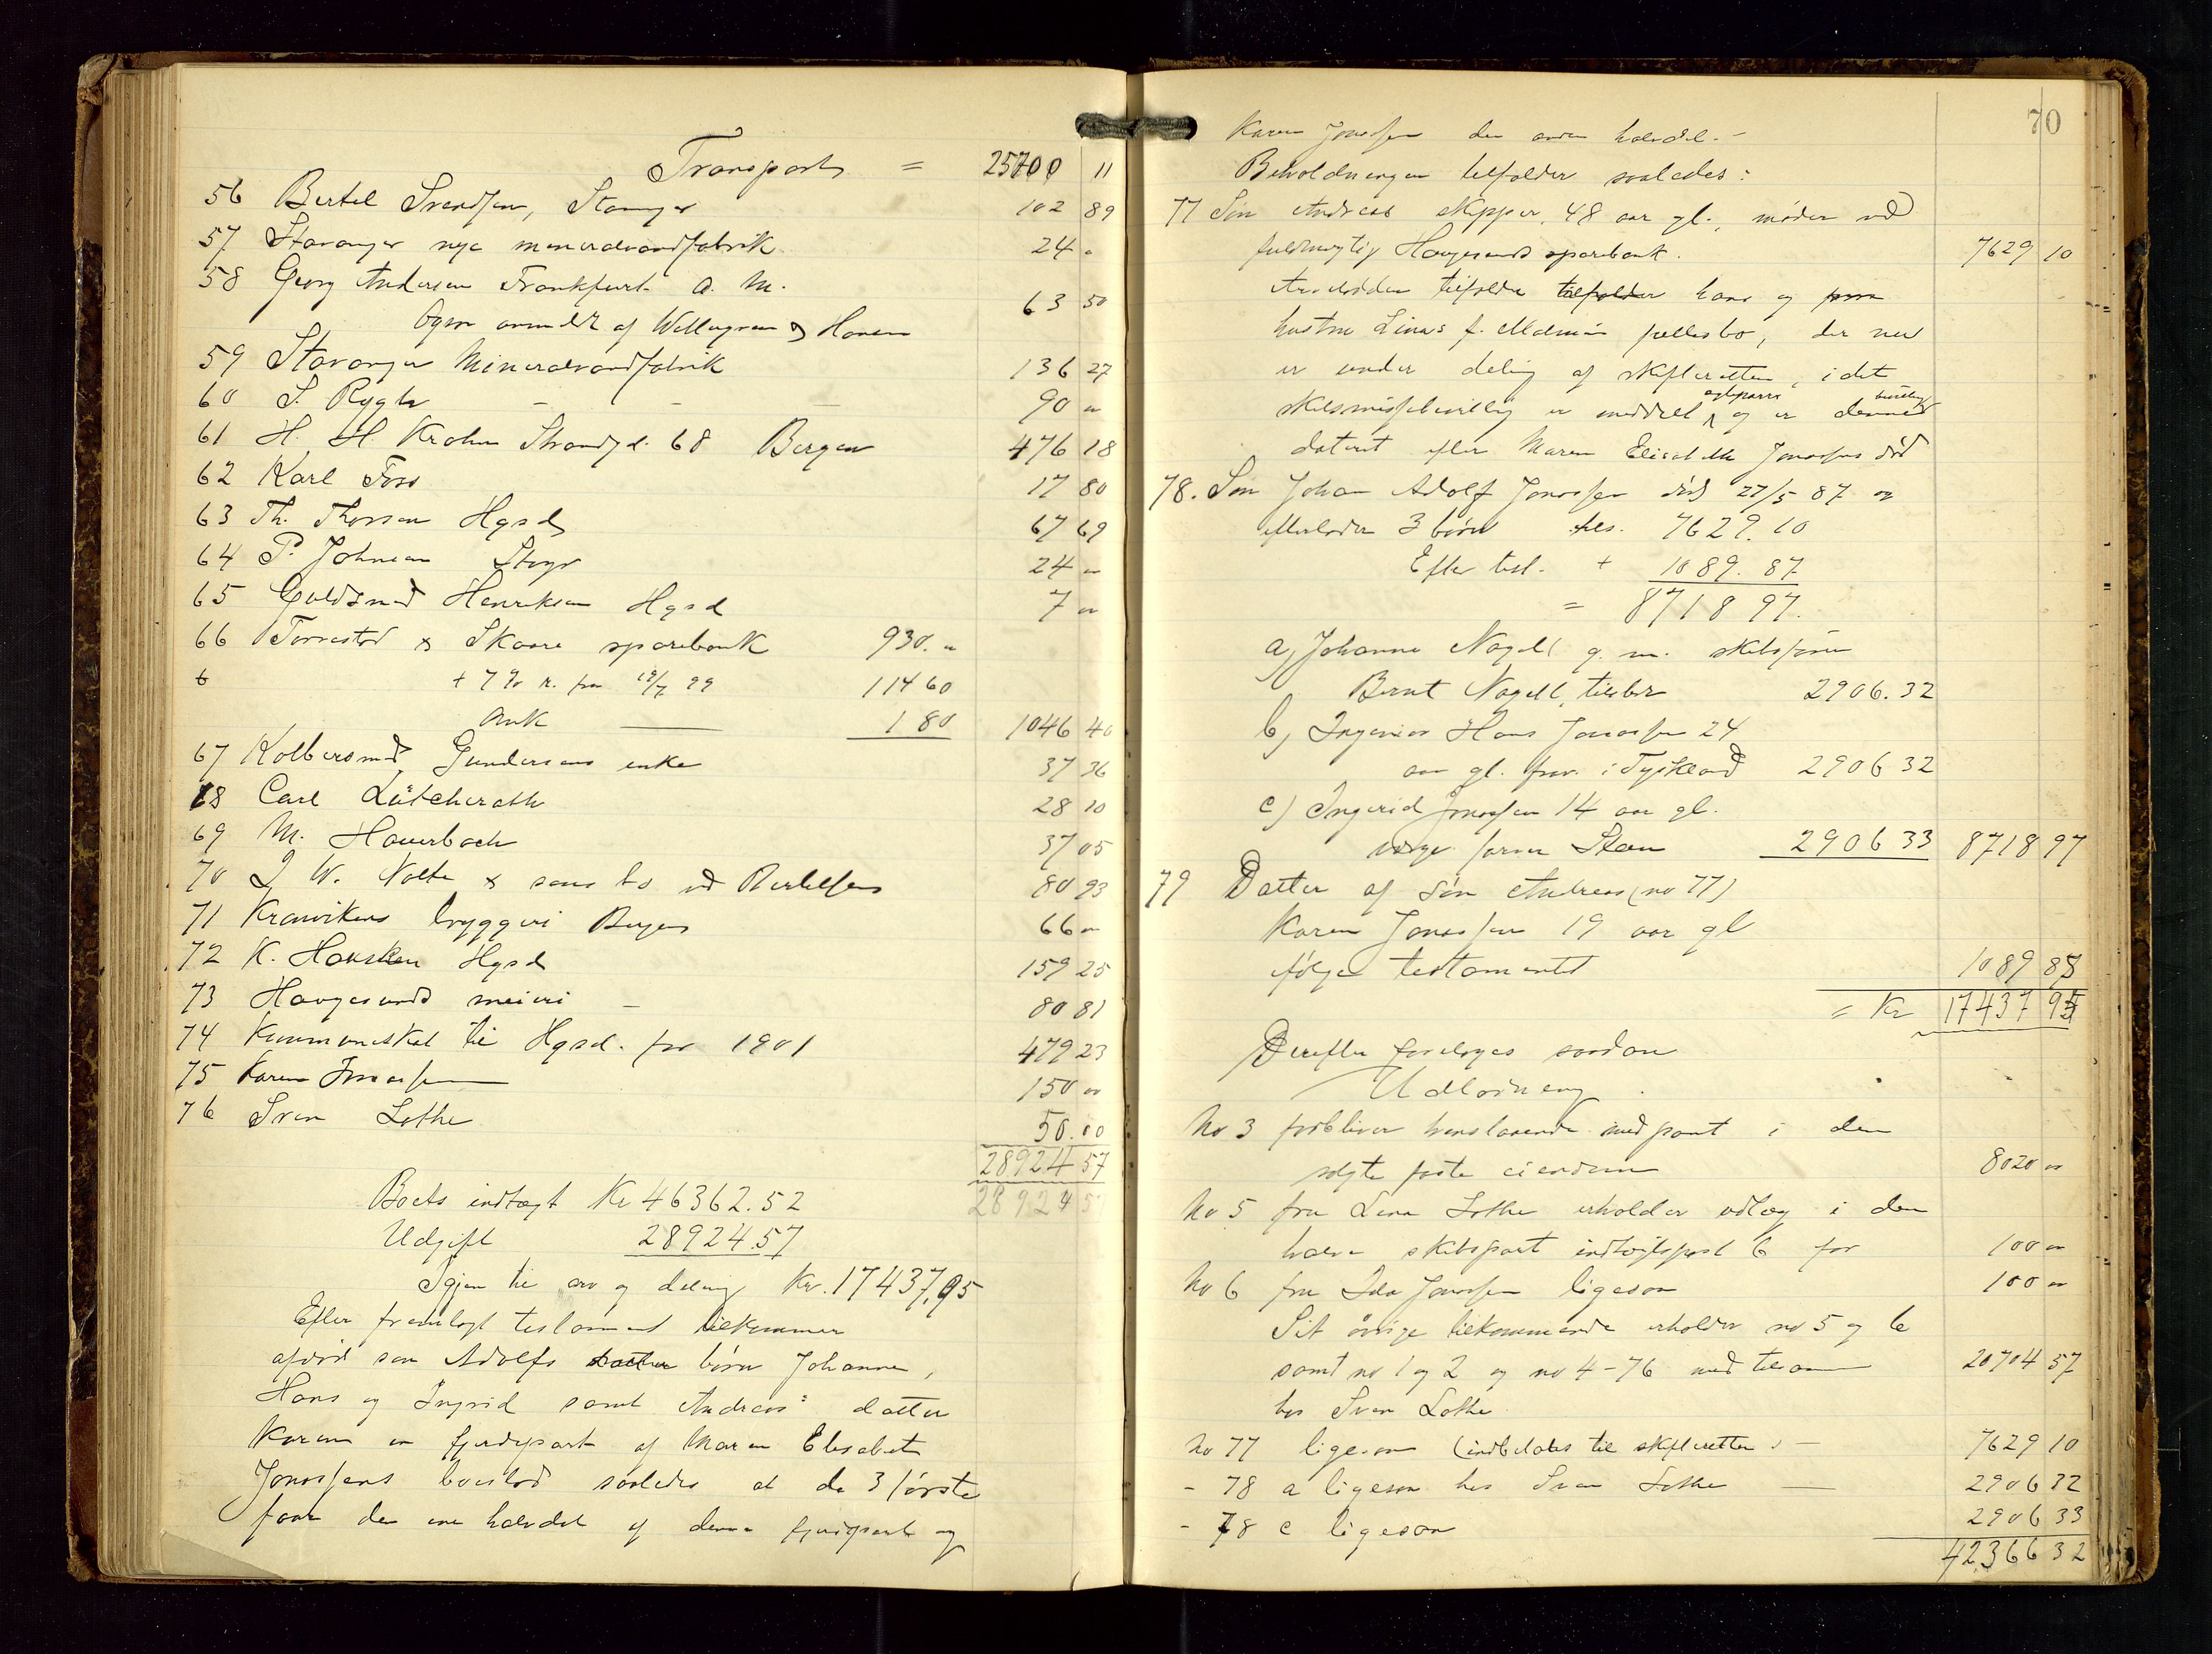 Transport = 25700 11
56 Bertel Svendsen, Stavanger 102 89
57 Stavanger nye mineralvandfabrik 24 "
58 Georg Andersen Frankfurt a. M.
af Wellengreen & Hansen 63 50
59 Stavanger Mineralvandfabrik 136 27
60 S. Rygh — — — 90 "
61 H. H. Krohn Strandgd. 68 Bergen 476 18
62 Karl Foss 17 80
63 Th. Thorsen Hgsd 67 69
64 P. Johnsen Stvgr 24 "
65 Guldsmed Henriksen Hgsd 7 "
66 Torvestad & Skaare sparebank 930. "
+ 7 % r. fra 19/7 99 114 60
Ank — 1 80 1046 40
67 Kobbersmed Gundersens enke 37 36
68 Carl Lütcherath 28 10
69 M. Hauerbach 37 05
70 J W. Nolte & søns bo vd Bertelsen 80 93
71 bryggeri Bergen 66 "
72 K. Hausken Hgsd 159 25
73 Haugesunds meieri — 80 81
74 Kommuneskat til Hgsd. for 1901 479 23
75 Karen Jonassen 150 "
76 Sven Lothe 50.00
28924 57
28924 57
Boets indtægt Kr 46362.52
Udgift 28924.57
Igjen til arv og deling Kr. 17437,95
Efter fremlagt testament tilkommer
afdød søn Adolfs datter børn Johanne,
Hans og Ingrid samt Andreas' datter
Karen en fjerdepart af Maren Elisabet
Jonassens boeslod saaledes at de 3 første
faar den ene halvdel af denne fjerdepart og
70
Karen Jonassen den anden halvdel. —
Beholdningen tilfalder saaledes:
77 Søn Andreas skipper, 48 aar gl., møder ved
fuldmægtig Haugesunds sparebank. 7629 10
Arvelodden tilfalder tilfalder hans og
hustru Linas f. fællesbo, der nu
er under deling af skifteretten, idet
skilsmissebevilling er meddelt og er denne
dateret efter Maren Elisabeth Jonassens død
78. Søn Johan Adolf Jonassen død 27/5 87 og
efterlader 3 børn 7629.10
Efter test. + 1089.87
= 8718 97.
a) Johanne Nagell g. m. skibsfører
Bernt Nagell, 2906.32
b) Ingeniør Hans Jonassen 24
aar gl. i Tyskland 2906 32
c) Ingerid Jonassen 14 aar gl.
værge 2906 33 8718 97
79 Datter af søn Andreas (no 77)
Karen Jonassen 19 aar gl
ifølge testamentet 1089 88
= Kr 17437 95
Derefter foretoges saadan
Udlodning.
No 3 forbliver henstaaende med pant i den
solgte faste eiendom 8020 "
No 5 fru Lina Lothe erholder udlæg i den
halve skibspart indtægtspost 6 for 100 "
No 6 fru Ida Jonassen ligesaa 100 "
Sit øvrige tilkommende erholder no 5 og 6
samt no 1 og 2 og no 4-76 ved 20704 57
hos Sven Lothe
No 77 ligesaa (indbetales til skifteretten) — 7629 10
- 78 a ligesaa hos Sven Lothe — 2906 32
- 78 c ligesaa 2906 33
42366 32